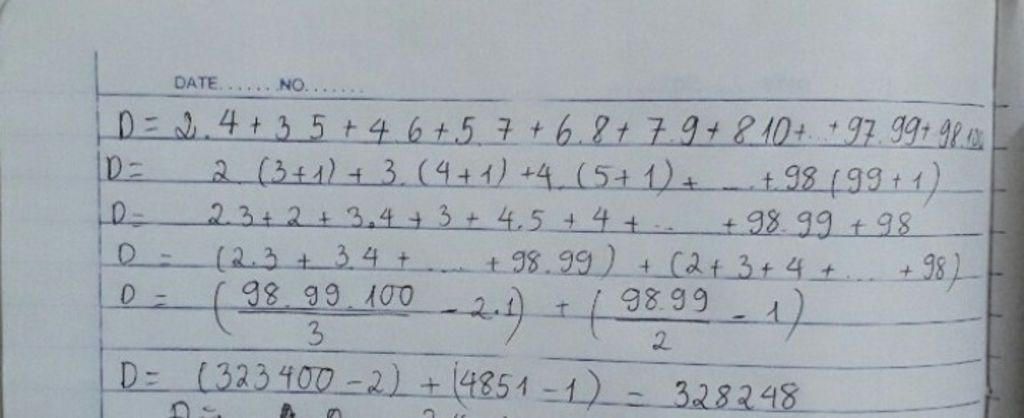 DATE.......NO.......
D = 2.4 + 3 5 + 4.6 + 5.7 + 6.8 + 7.9 + 8.10+...+97.99+98.100
D = 2.(3+1) + 3.(4+1) +4.(5+1) + ... +98(99+1)
D = 2.3 + 2 + 3.4 + 3 + 4.5 + 4 + ... + 98.99 + 98
D = (2.3 + 3.4 + .... + 98.99) + (2+3+4 + .... + 98)
D = (98.99.100/3 - 2.1) + (98.99/2 - 1)
D = (323400 - 2) + (4851 - 1) = 328248